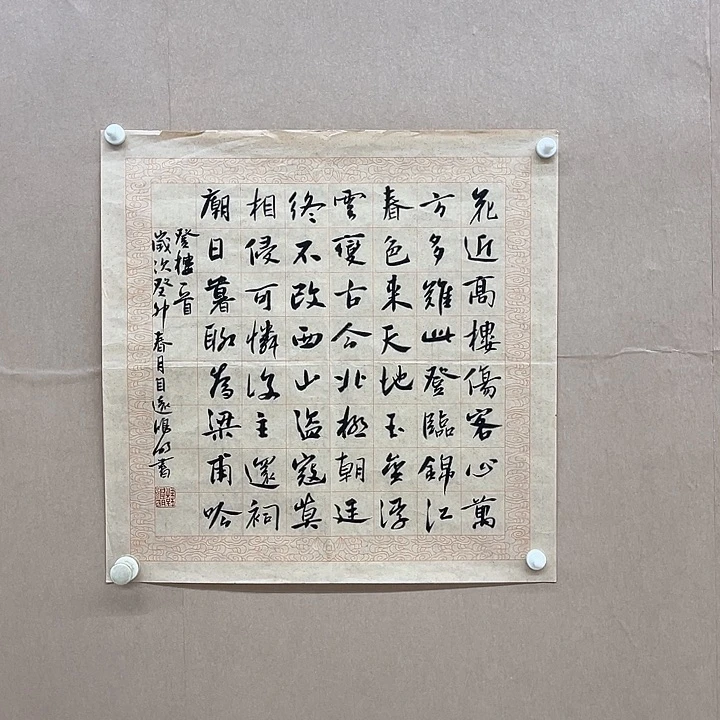 花近高樓傷客心萬
方多難此登臨錦江
春色来天地玉垒浮
雲變古今北極朝廷
終不改西山盜寇莫
相侵可憐後主還祠
廟日暮聊為梁甫吟
登樓一首
歲次癸卯春月書